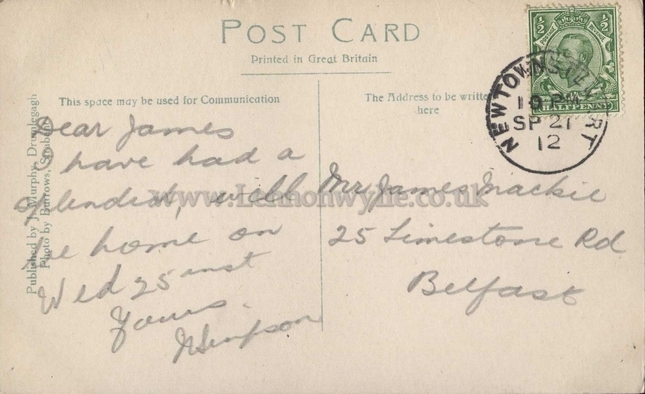 POST CARD
Printed in Great Britain
This space may be used for Communication
The Address to be written
here
½ ½
HALFPENNY
NEWTOWNSTEWART
10 PM
SP 21
12
Dear James
I have had a
splendid, will
be home on
Wed 25 inst
Yours.
NSimpson
Mr James Mackie
25 Limestone Rd
Belfast
Published by J. Murphy, Drumlegagh
Photo by Burrows, Strabane
www.Lennonwylie.co.uk